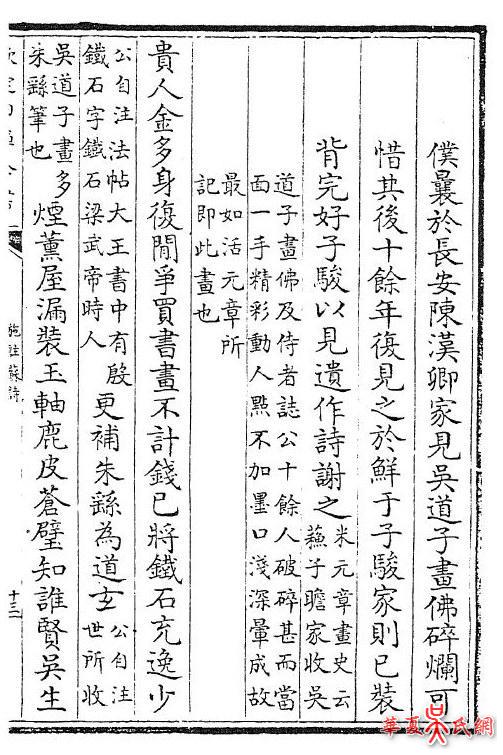 僕曩於長安陳漢卿家見吳道子畫佛碎爛可
惜其後十餘年復見之於鮮于子駿家則已裝
背完好子駿以見遺作詩謝之
米元章畫史云
蘇子瞻家收吳
道子畫佛及侍者誌公十餘人破碎甚而當
面一手精彩動人點不加墨口淺深暈成故
最如活元章所
記即此畫也
貴人金多身復閒爭買書畫不計錢已將鐵石充逸少
公自注法帖大王書中有殷
鐵石字鐵石梁武帝時人
更補朱繇為道玄
公自注
世所收
吳道子畫多
朱繇筆也
煙薰屋漏裝玉軸鹿皮蒼璧知誰賢吳生
施註蘇詩
十三
華夏吳氏網